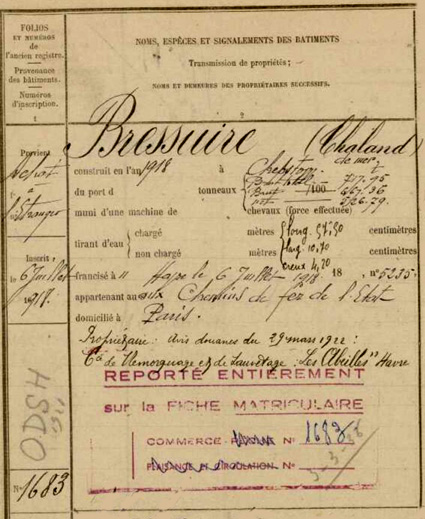 FOLIOS
ET NUMÉROS
de
l'ancien registre.
Provenance
des bâtiments.
Numéros
d'inscription.
1
NOMS, ESPÈCES ET SIGNALEMENTS DES BATIMENTS
Transmission de propriétés ; —
NOMS ET DEMEURES DES PROPRIÉTAIRES SUCCESSIFS.
2
Bressuire (Chaland)
de mer
Provient
Achat
à
l'étranger
Inscrit :
le 6 Juillet
1918.
Nº 1683
construit en l'an 1918 à Chepstow
du port d tonneaux /100
muni d'une machine de chevaux (force effectuée)
tirant d'eau { chargé mètres long. 57,50 centimètres
non chargé mètres larg. 10,70 centimètres
creux 4,20
francisé à le 6 Juillet 1918 18 , nº 5235.
appartenant aux Chemins de fer de l'Etat
domicilié à Paris.
Propriétaire : avis douanes du 29 mars 1922 :
Cie de Remorquage et de Sauvetage "Les Abeilles" Havre
REPORTÉ ENTIEREMENT
sur la FICHE MATRICULAIRE
COMMERCE Nº 1683
PLAISANCE ou CIRCULATION Nº
ODSH